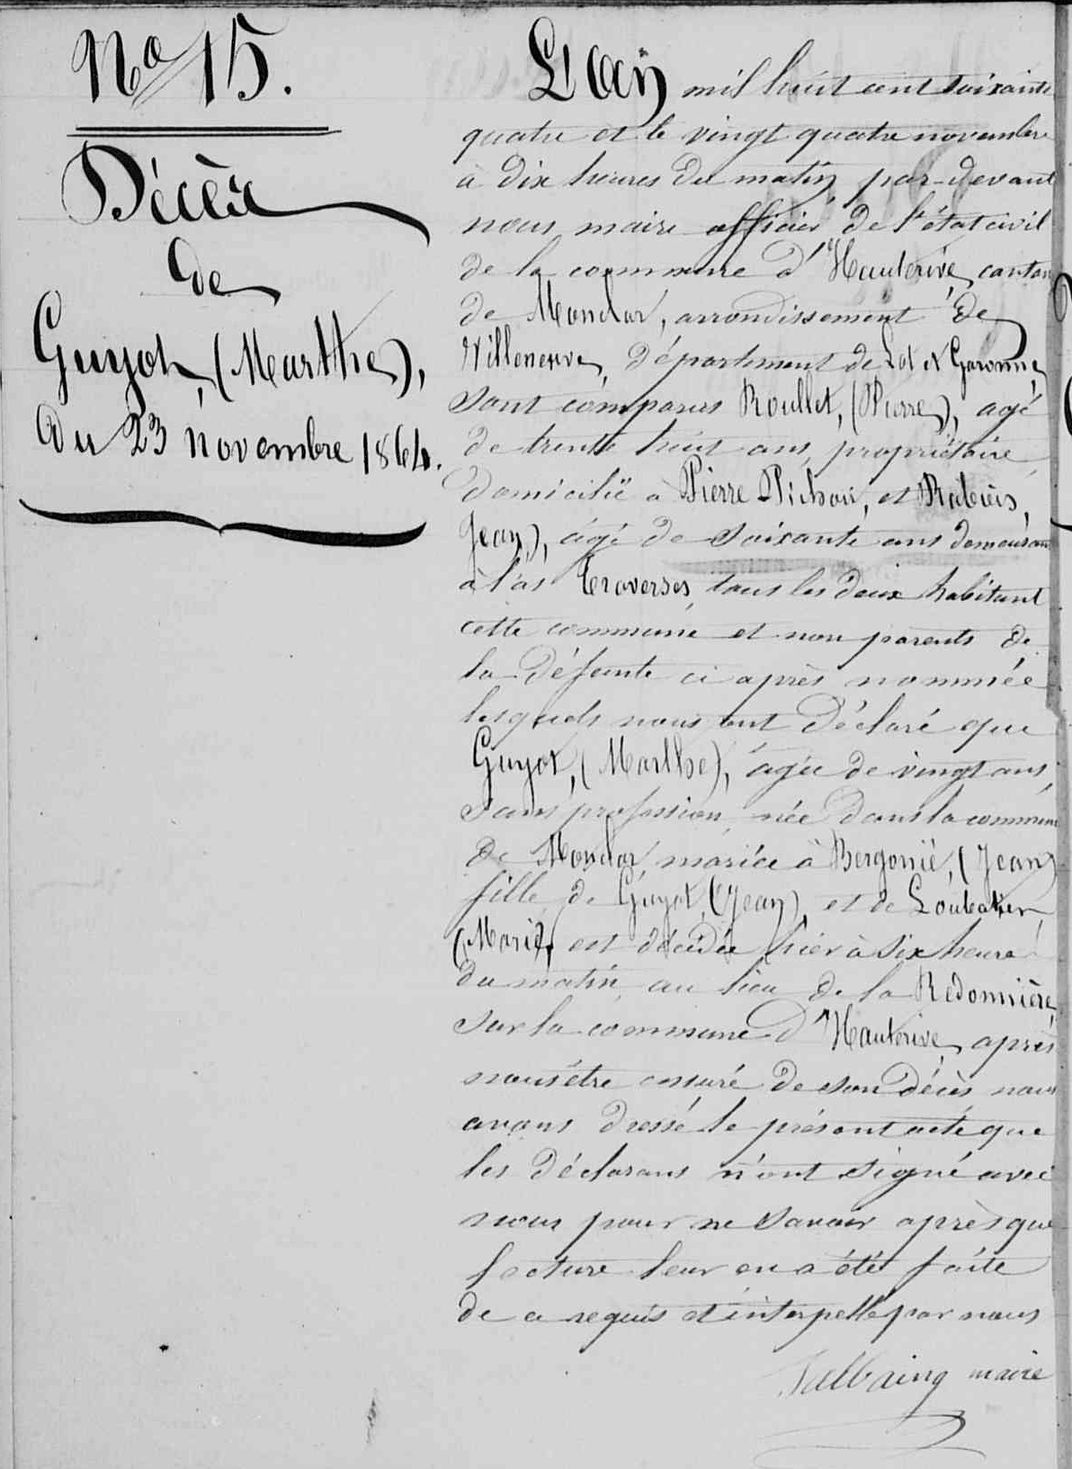 No 15.
Décès
de
Guyot, (Marthe),
Du 23 novembre 1864.
L'an mil huit cent soixante
quatre et le vingt quatre novembre
à dix heures du matin par-devant
nous maire officier de l'état civil
de la commune d'Hauterive, canton
de Monclar, arrondissement de
Villeneuve, département de Lot et Garonne,
sont comparus Roullet, (Pierre), agé
de trente huit ans, propriétaire,
domicilié à Pierre Pichou, et
Jean), âgé de soixante ans demeurant
à las Traverses, tous les deux habitant
cette commune et non parents de
la défunte ci après nommée
lesquels nous ont déclaré que
Guyot, (Marthe), âgée de vingt ans,
sans profession, née dans la commune
de Monclar, mariée à Bergonié, (Jean)
fille de Guyot, (Jean), et de
(Marie), est décédée hier à six heure
du matin, au lieu de la Redonnière,
sur la commune d'Hauterive, après
nous être assuré de son décès nous
avons dressé le présent acte que
les déclarans n'ont signé avec
nous pour ne savoir après que
lecture leur en a été faite
de ce requis et interpellé par nous
maire